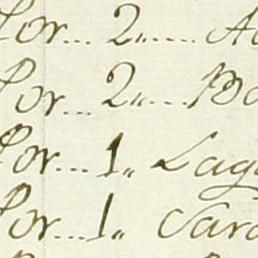 Por... 2,,....
Por... 2,,...
Por... 1,, Lag
Por... 1,, Sar